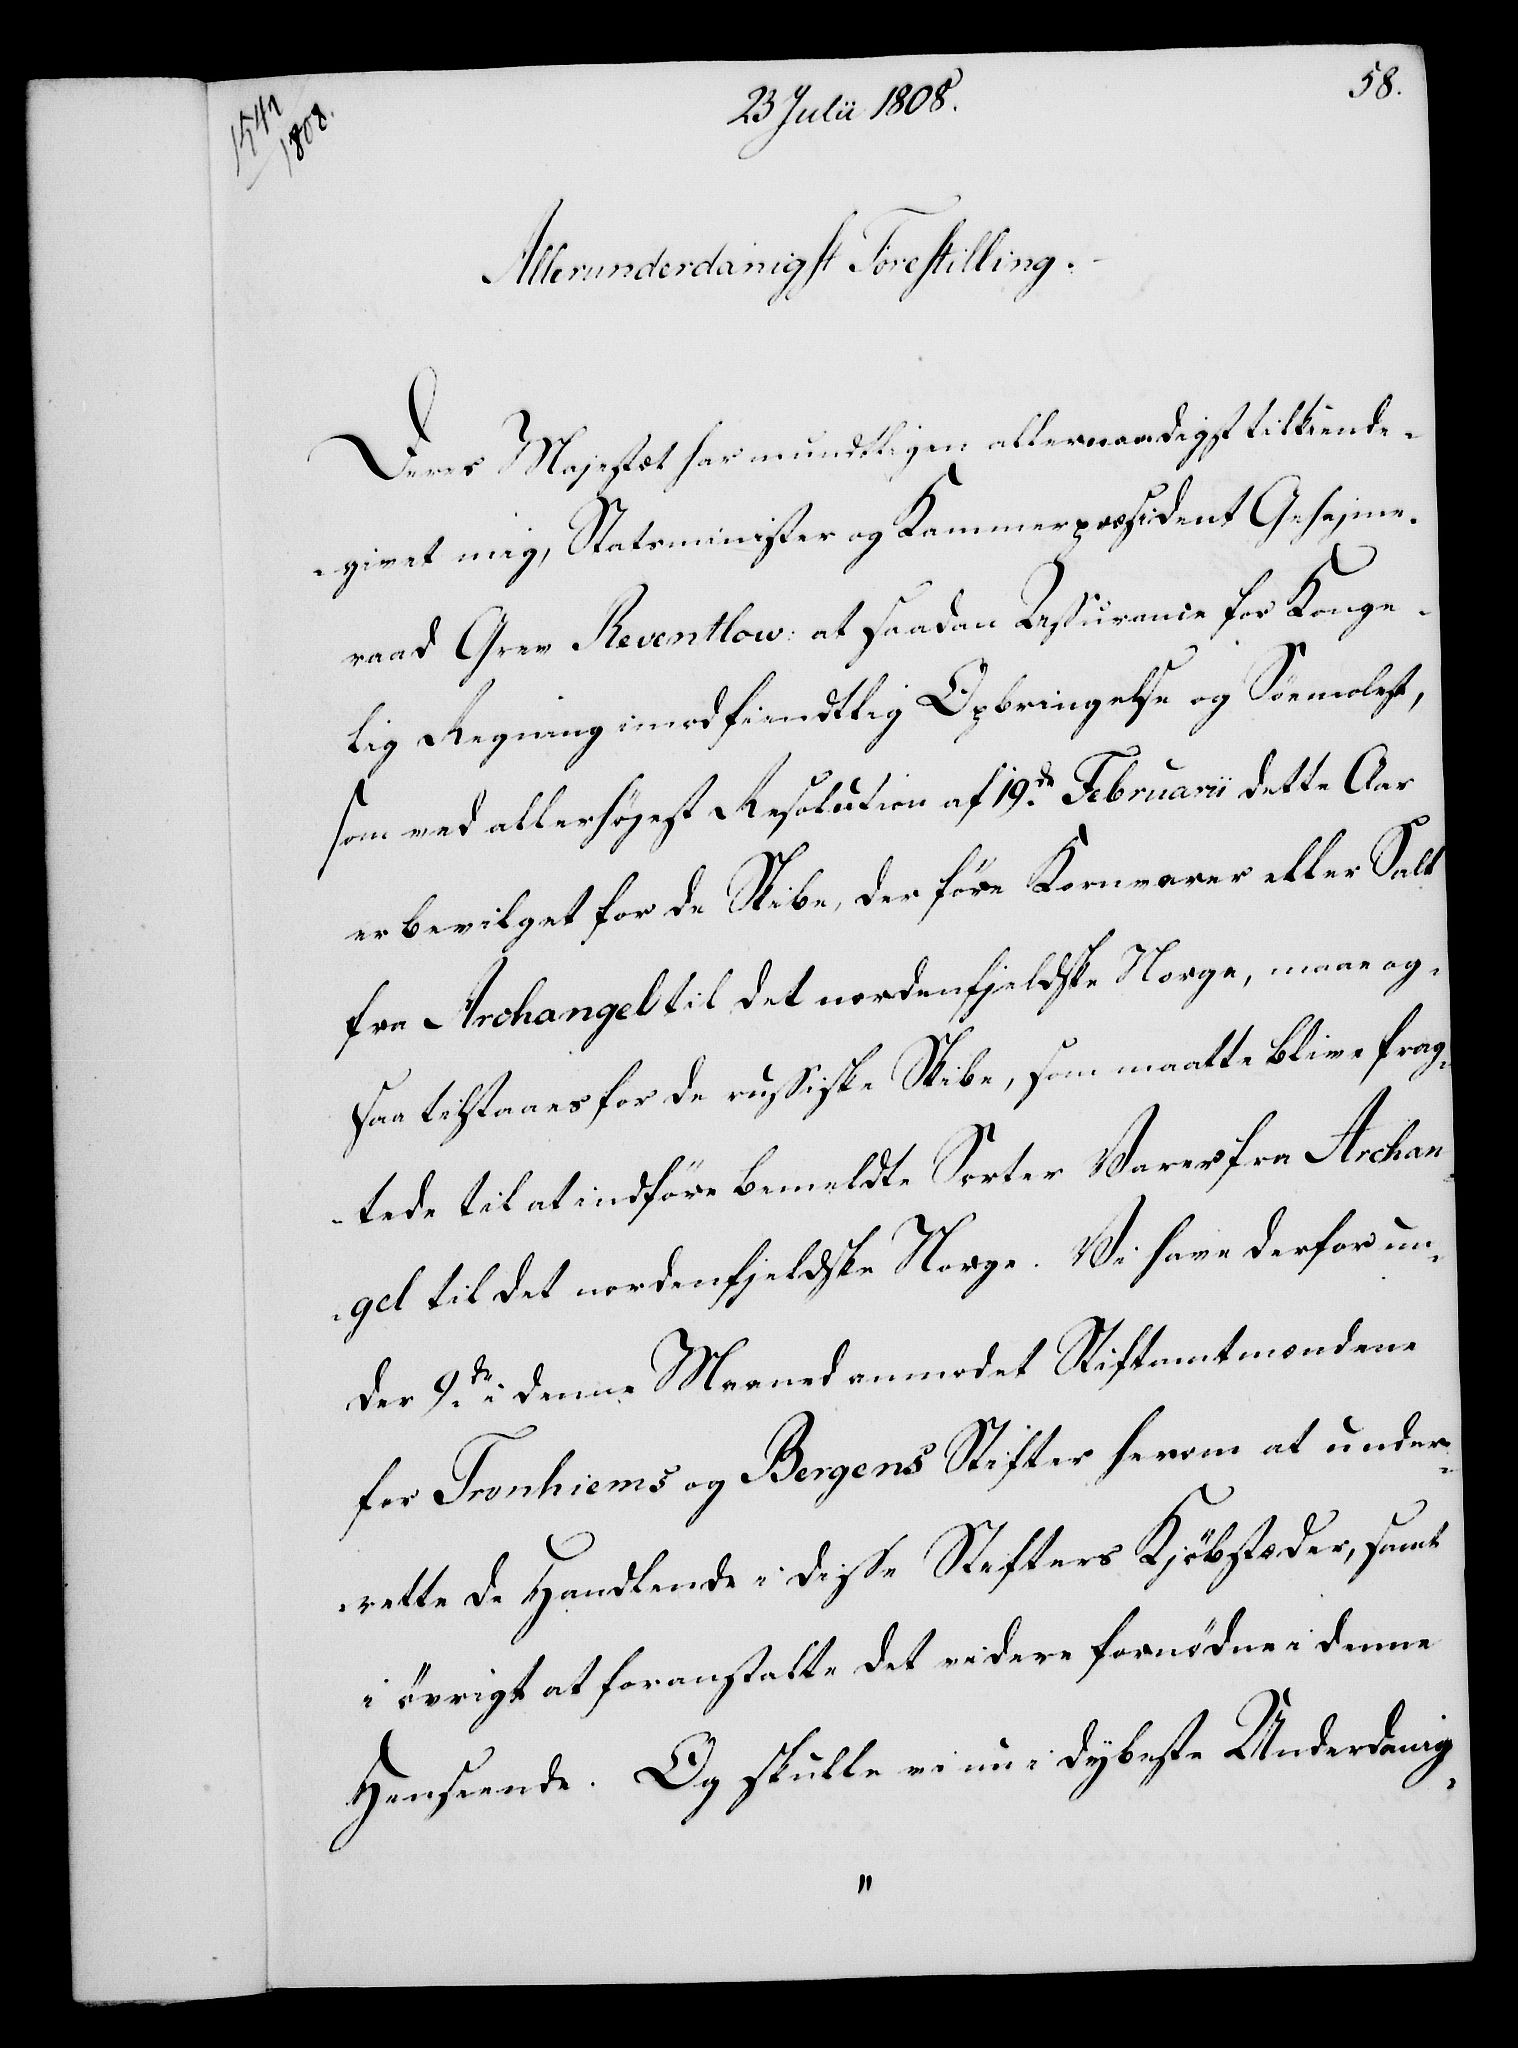 1542
1808.
23 Julii 1808.
58.
Allerunderdanigst Forestilling.
Deres Majestæt har mundtligen allernaadigst tilkiende-
-givet mig, Statsminister og Kammerpræsident Gehejme-
raad Grev Reventlow: at saadan Assurance for Konge-
lig Regning imod fiendtlig Opbringelse og Söemolest,
som ved allerhöjest Resolution af 19de Februarii dette Aar
er bevilget for de Skibe, der före Kornvarer eller Salt
fra Archangel til det nordenfjeldske Norge, maae og-
saa tilstaaes for de russiske Skibe, som maatte blive frag-
-tede til at indföre bemeldte Sorter Varer fra Archan-
-gel til det nordenfjeldske Norge. Vi have derfor un-
der 9de i denne Maaned anmodet Stiftamtmændene
for Tronhiems og Bergens Stifter herom at under-
-rette de Handlende i disse Stifters Kjöbstæder, samt
i övrigt at foranstalte det videre fornödne i denne
Henseende. Og skulle vi nu i dybeste Underdanig-
"